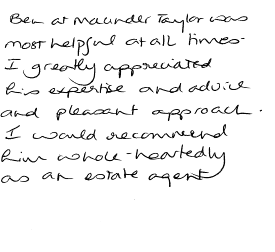 Ben at Maunder Taylor was
most helpful at all times.
I greatly appreciated
his expertise and advice
and pleasant approach.
I would recommend
him whole-heartedly
as an estate agent